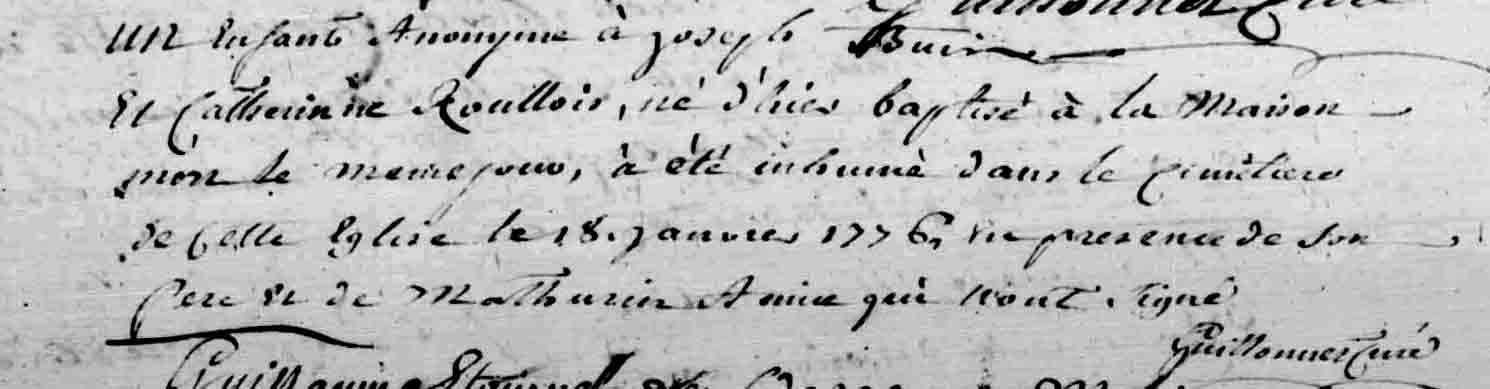 un Enfant Anonyme à joseph Buin
Et Catherinne Roullois, né d'hier baptisé à la Maison
mort le meme jour, à été inhumé dans le Cimétiere
de Cette Eglise le 18. janvier 1776, En presence de son
pere Et de Mathurin Amice qui n'ont signé
Guillonnet Curé